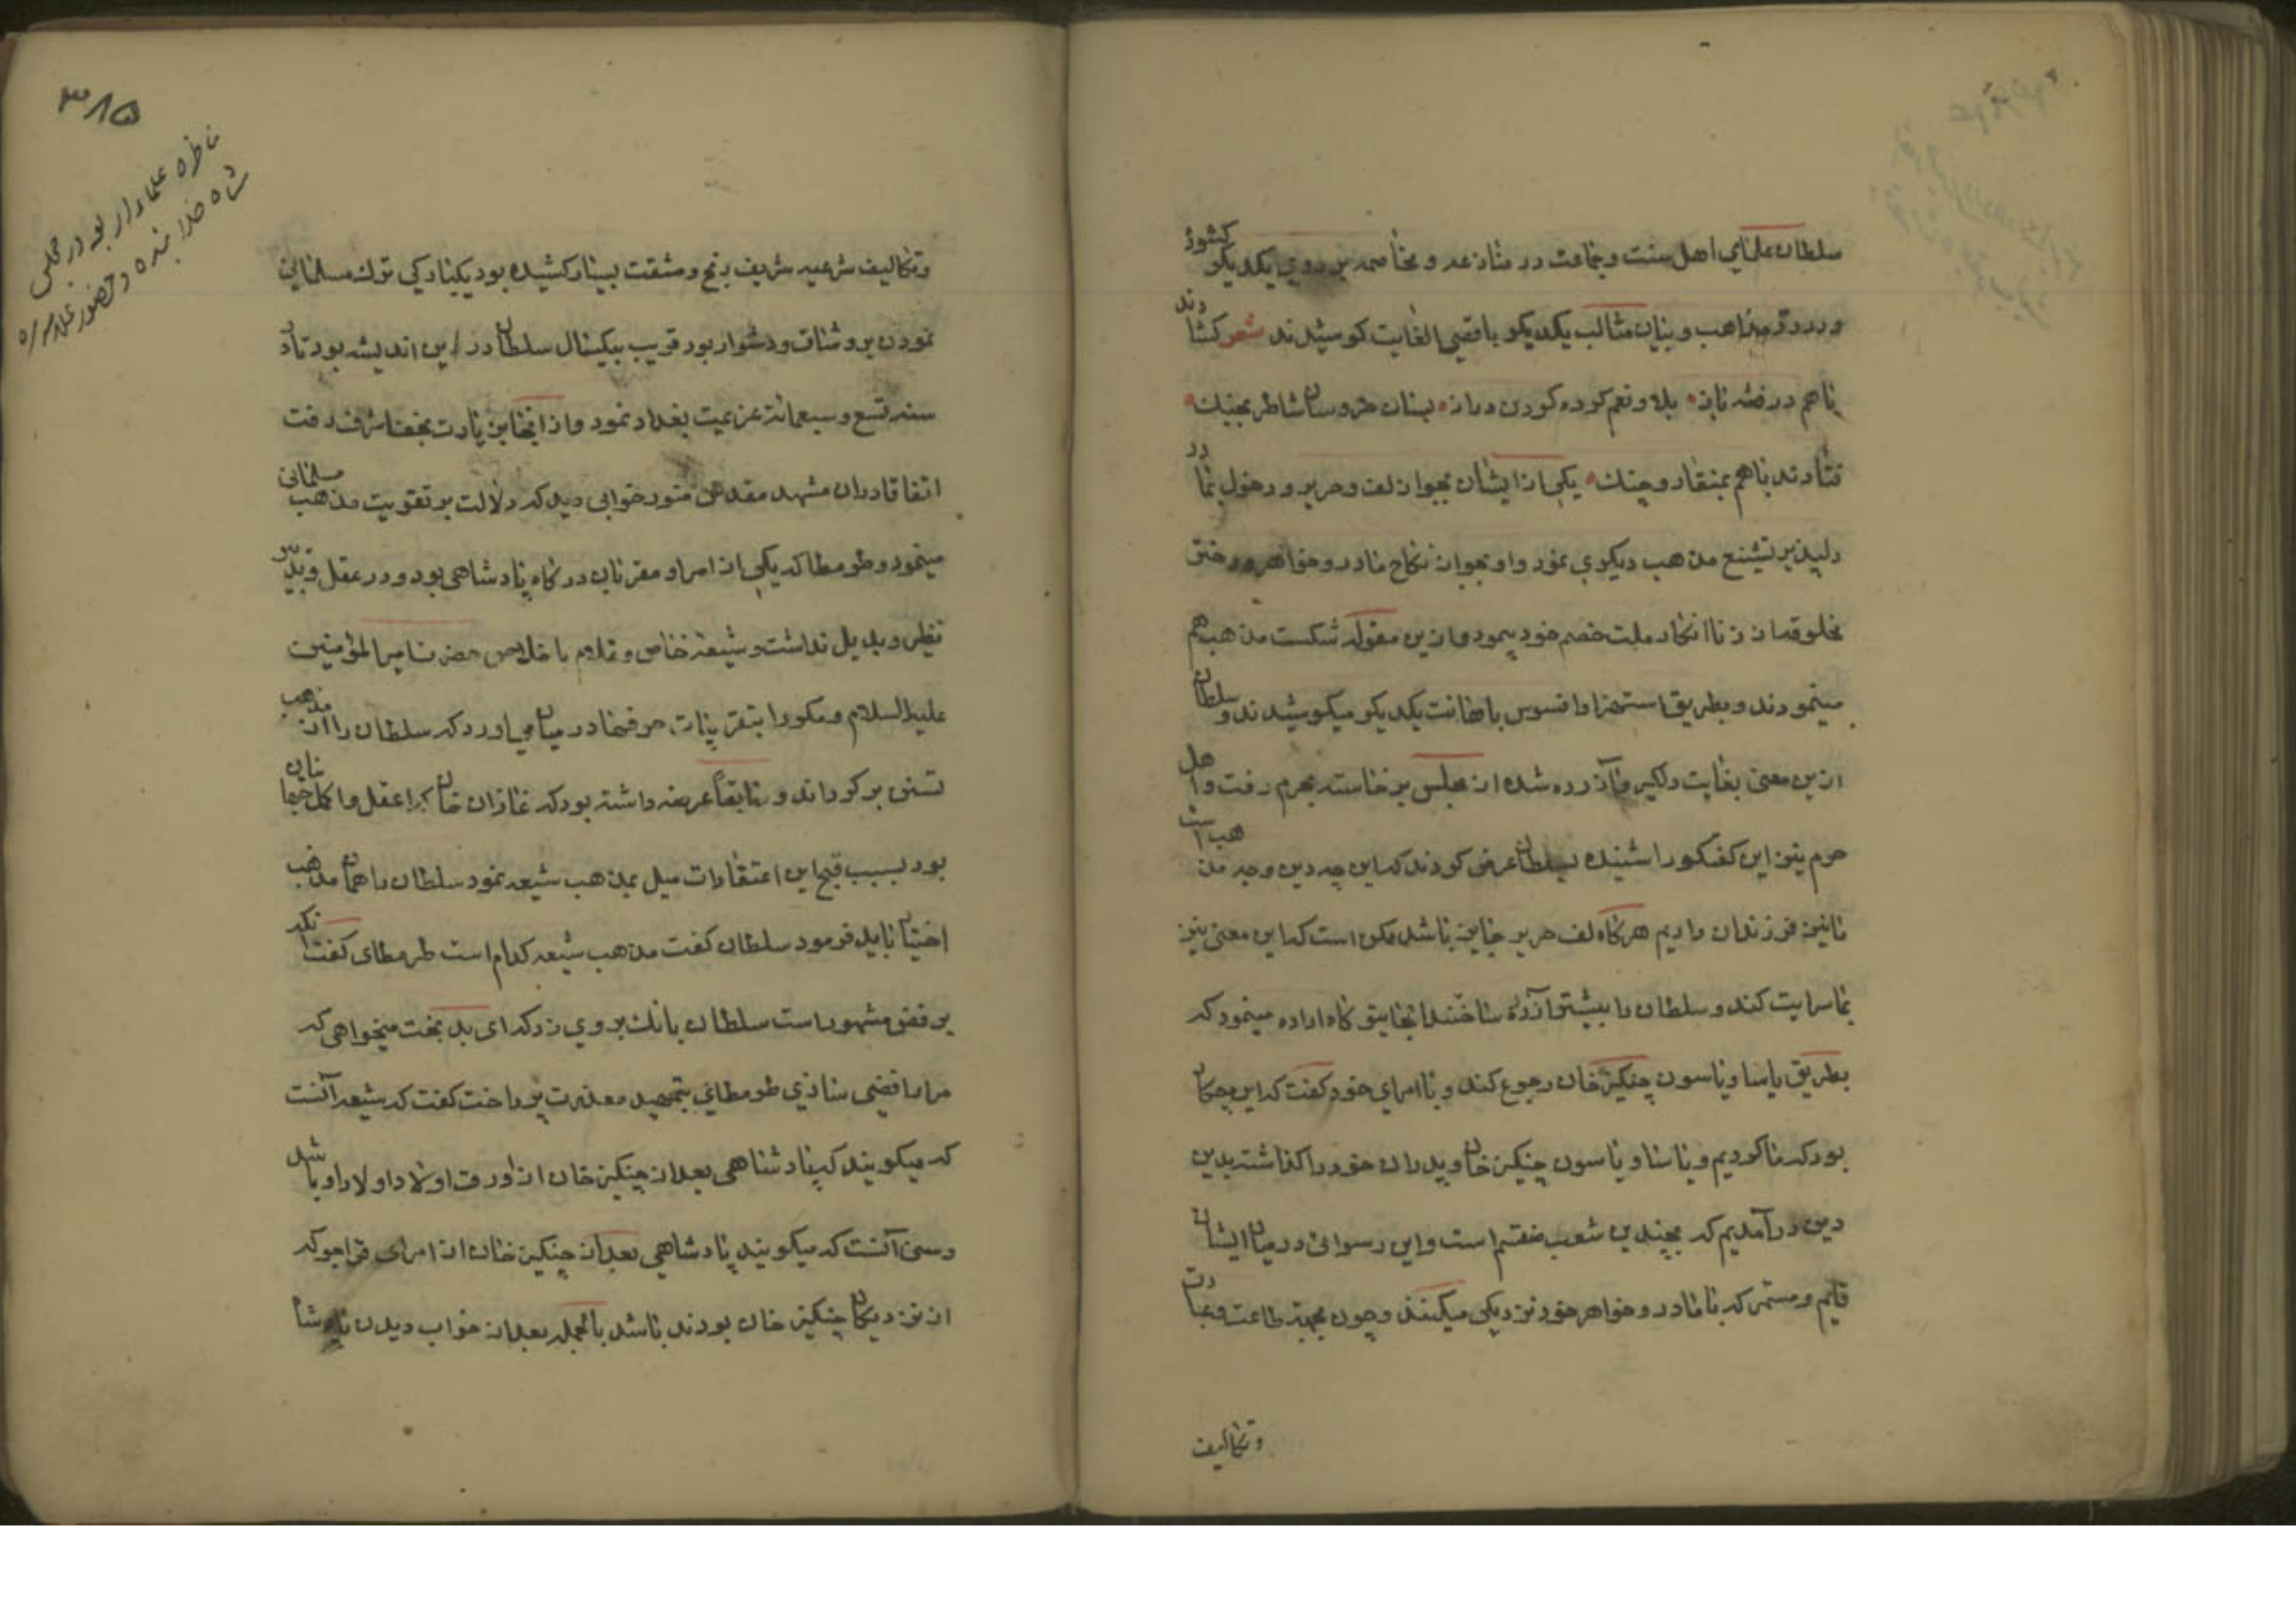 سلطان علمای اهل سنت و جماعت در منازعه و مخاصمه بر روی یکدیکر کشوذ
و در رد مذاهب و بیان مثالب یکدیکر باقصی الغایت کوشیدند شعر کشادند
باهم در فتنه باز بلا و نعم کرده کردن دراز بسان خروسان شاطر بجنک
فتادند باهم بمنقار و چنک یکی از ایشان بجواز لف و حریر و دخول بمادر
دلیل بر تشنیع مذهب دیکری نمود و او بجواز نکاح مادر و خواهر و دختر
مخلوقه از زنا انکار ملت خصم خود بیمود و ازین مقوله شکست مذهب هم
مینمودند و بطریق استهزا و افسوس باهانت یکدیکر میکوشیدند و سلطان
ازین معنی بغایت دلکیر و آزرده شده از مجلس برخاسته بحرم رفت و اهل
حرم نیز این کفتکو را شنیده بسلطان عرض کردند که این چه دین و چه مذهب است
مانیز فرزندان داریم هرکاه لف حریر جایز باشد ممکن است که این معنی نیز
بما سرایت کند و سلطان را بیشتر آزرده ساختند انجا بیتو کاه اراده مینمود که
بطریق یاسا و یاسون چنکیز خان رجوع کند و با امرای خود کفت که این چه کار
بود که ما کردیم و یاسا و یاسون چنکیز خان و پدران خود را کذاشته بدین
دین درآمدیم که بچندین شعب منقسم است و این رسوائی در میان ایشان
قایم و مستمر که با مادر و خواهر خود نزدیکی میکنند و چون بجهة طاعت و عبادت
و تکالیف
۳۸۵
مناظره علما دار بود در مجلس
شاه خدا بنده در حضور علامه ره
و تکالیف شرعیه شریف رنج و مشقت بسیار کشیده بود بیکبارکی ترک مسلمانی
نمودن بر و شاق و دشوار بود قریب بیکسال سلطان در این اندیشه بود تا در
سنه تسع و سبعمائة عزیمت بغداد نمود و از انجا بزیارت نجف اشرف رفت
اتفاقا دران مشهد مقدس منور خوابی دید که دلالت بر تقویت مذهب مسلمانی
مینمود و طرمطا که یکی از امرا و مقربان درکاه پادشاهی بود و در عقل و تدبیر
نظیر و بدیل نداشت و شیعه خاص و ملازم با اخلاص حضرت امیر المؤمنین
علیه السلام و مکررا بتقریبات حرفها در میان می اورد که سلطان را از مذهب
تسنن بر کرداند و سابقاً عرضه داشته بود که غازان خان که اعقل و اکمل جهانیان
بود بسبب قبح این اعتقادات میل بمذهب شیعه نمود سلطان را همان مذهب
اختیار باید فرمود سلطان کفت مذهب شیعه کدام است طرمطای کفت انکه
برفض مشهور است سلطان بانک بر وی زد که ای بد بخت میخواهی که
مرا رافضی سازی طرمطای بتمهید معذرت پرداخت کفت که شیعه آنست
که میکویند که پادشاهی بعد از چنکیز خان از اورق اولاد اولاد او باشد
و سنی آنست که میکویند پادشاهی بعد از چنکیز خان از امرای قراجو که
از نزدیکان چنکیز خان بودند باشد بالجمله بعد از خواب دیدن پادشاه